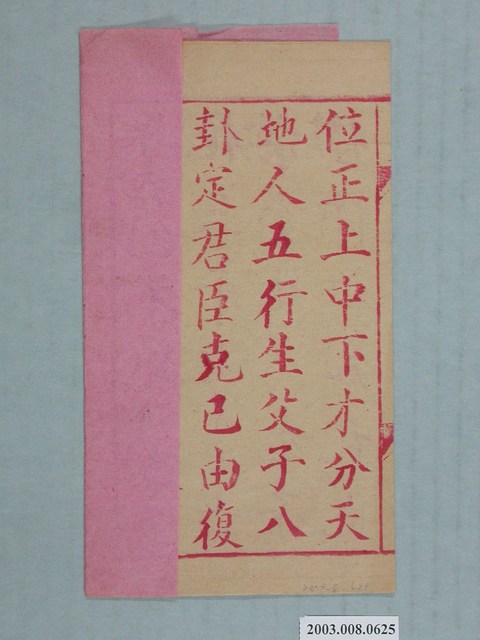 位正上中下才分天
地人五行生父子八
卦定君臣克己由復
2003.008.0625